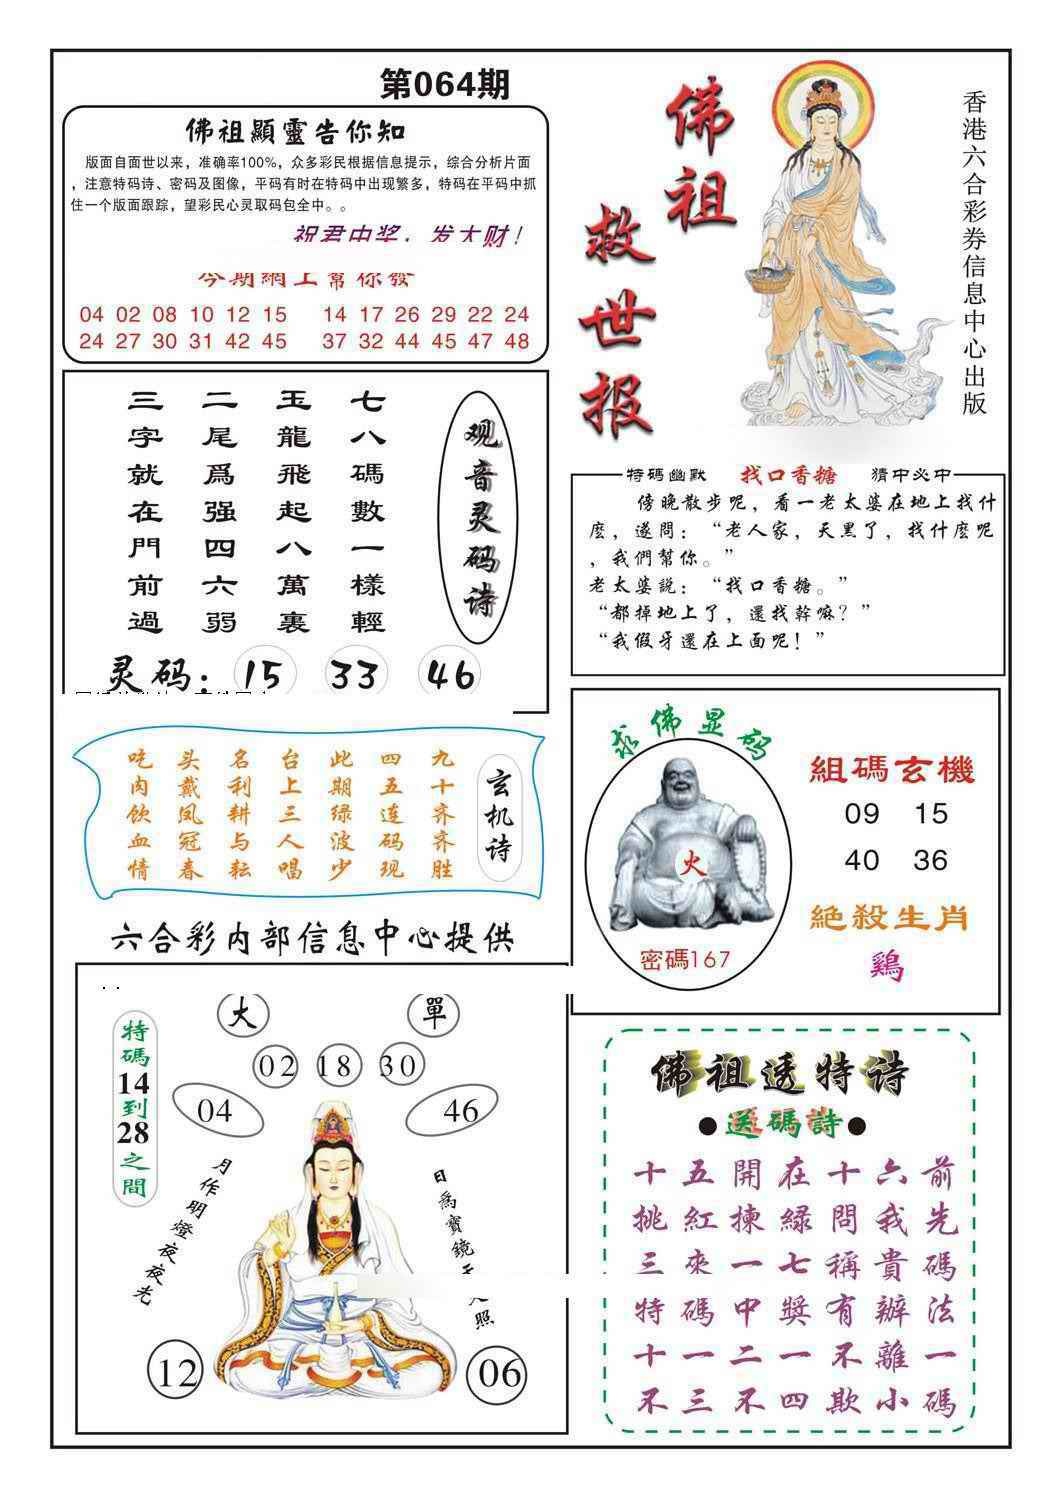 第064期
佛祖顯靈告你知
版面自面世以来，准确率100%，众多彩民根据信息提示，综合分析片面
，注意特码诗、密码及图像，平码有时在特码中出现繁多，特码在平码中抓
住一个版面跟踪，望彩民心灵取码包全中。。
祝君中奖，发大财！
今期網上幫你發
04 02 08 10 12 15 14 17 26 29 22 24
24 27 30 31 42 45 37 32 44 45 47 48
佛祖
救世报
香港六合彩券信息中心出版
观音灵码诗
七八碼數一樣輕
玉龍飛起八萬裏
二尾爲强四六弱
三字就在門前過
灵码：15 33 46
特碼幽默 找口香糖 猜中必中
傍晚散步呢，看一老太婆在地上找什
麽，遂問：“老人家，天黑了，找什麽呢
，我們幫你。”
老太婆説：“找口香糖。”
“都掉地上了，還找幹嘛？”
“我假牙還在上面呢！”
玄机诗
九十齐齐胜
四五连码现
此期绿波少
台上三人唱
名利耕与耘
头戴凤冠春
吃肉饮血情
求佛显码
火
密碼167
組碼玄機
09 15
40 36
絕殺生肖
鷄
六合彩内部信息中心提供
特碼14到28之間
大 單
02 18 30
04 46
月作明燈夜夜光
日爲寶鏡
照
12 06
佛祖透特诗
●送碼詩●
十五開在十六前
挑紅揀緑問我先
三來一七稱貴碼
特碼中獎有辦法
十一二一不離一
不三不四欺小碼